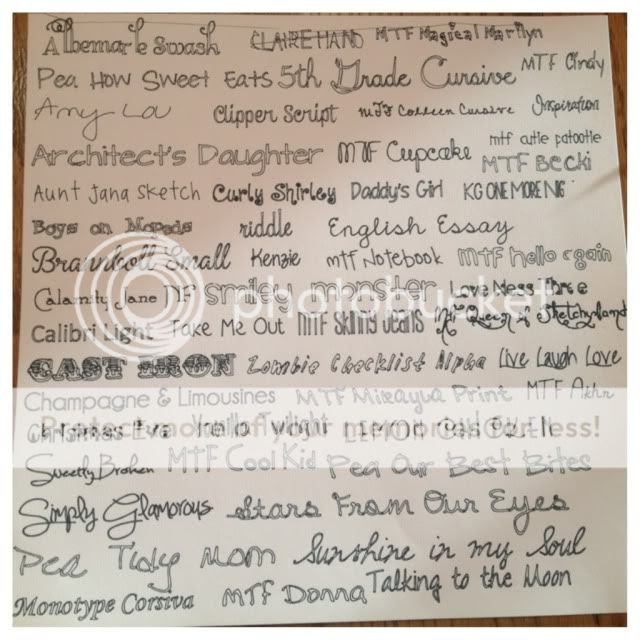 Albemarle Swash CLAIREHAND MTF Magical Marilyn
Pea How Sweet Eats 5th Grade Cursive MTF Cindy
Amy Lou Clipper Script MTF Colleen Cursive Inspiration
Architect's Daughter MTF Cupcake mtf cutie patootie
MTF Becki
Aunt Jana Sketch Curly Shirley Daddy's Girl KG ONE MORE NIG
Boys on Mopeds riddle English Essay
Brannboll Small Kenzie mtf Notebook MTF hello again
Calamity Jane NF smiley monster Love Ness Three
photobucket
Calibri Light Take Me Out MTF Skinny Jeans Queen of Sketchyland
CAST IRON Zombie Checklist Alpha Live Laugh Love
Champagne & Limousines MTF Mikayla Print MTF
Christmas Eve Vanilla Twilight LEMON CHICKEN
memories for less!
Sweetly Broken MTF Cool Kid Pea Our Best Bites
Simply Glamorous Stars From Our Eyes
Pea Tidy Mom Sunshine in my Soul
Monotype Corsiva MTF Donna Talking to the Moon